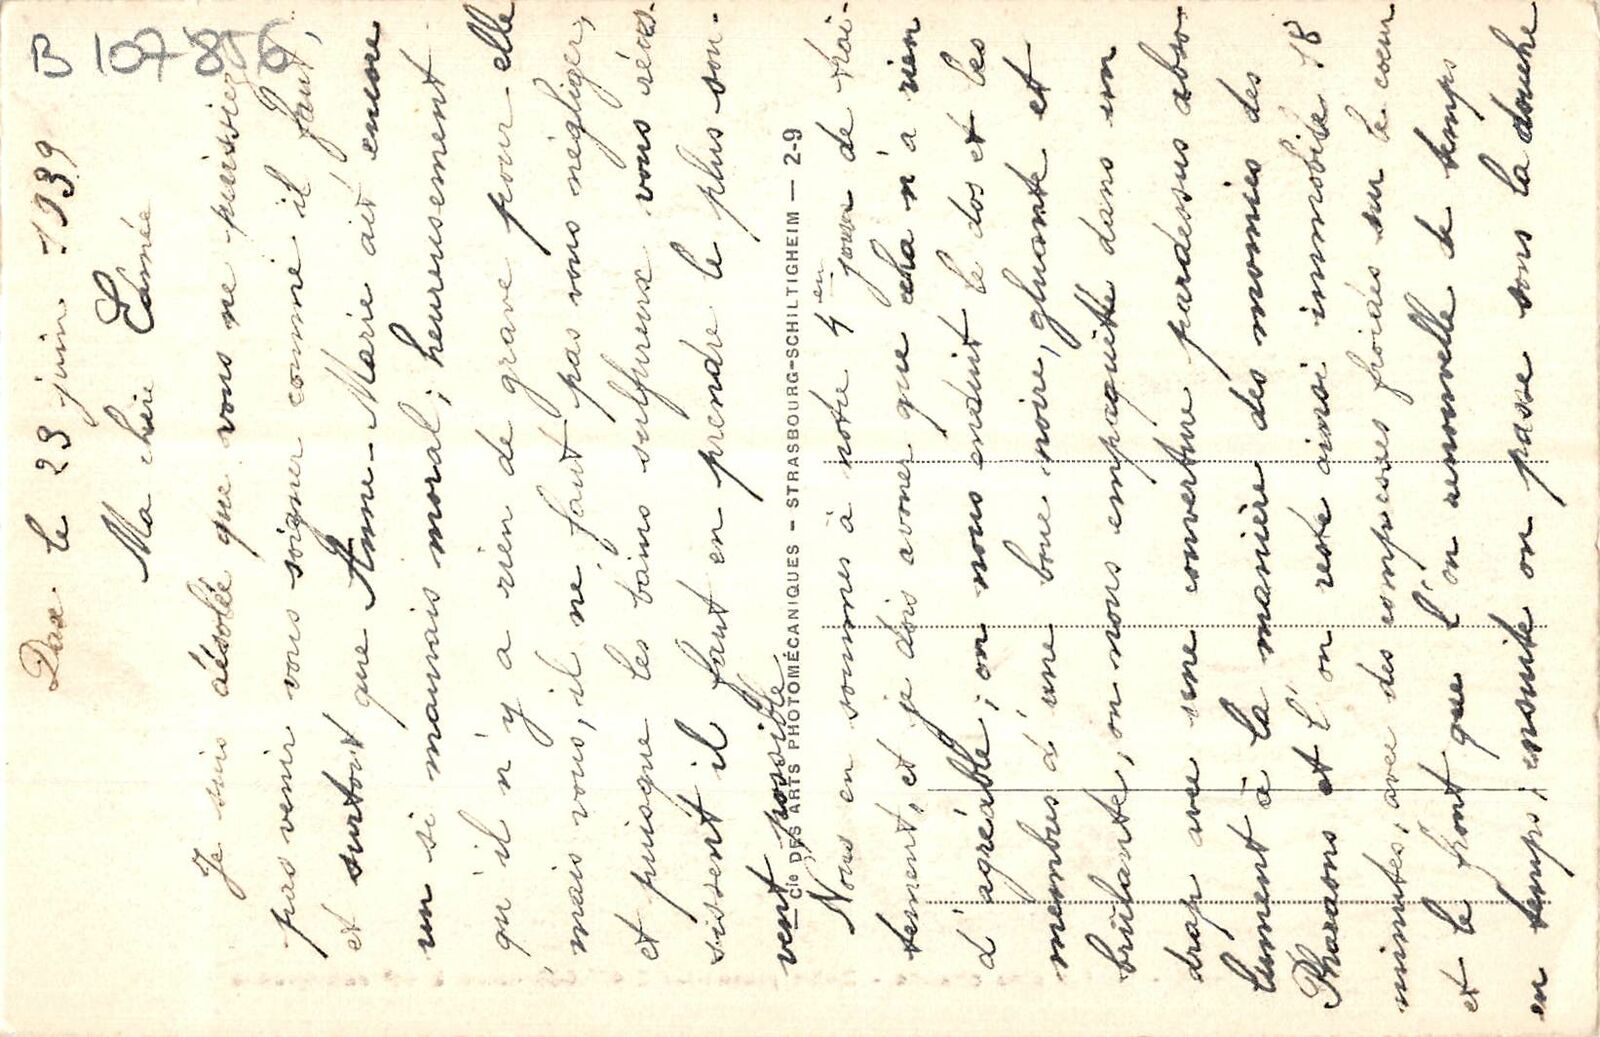 B 107856
Dax le 23 juin 1939
Ma chère Edmée
Je suis désolée que vous ne puissiez
pas venir vous soigner comme il faut,
et surtout que Anne-Marie ait encore
un si mauvais moral; heureusement
qu'il n'y a rien de grave pour elle
mais vous, il ne faut pas vous négliger,
et puisque les bains sulfureux vous réus-
sissent il faut en prendre le plus sou-
vent possible
Cie DES ARTS PHOTOMÉCANIQUES - STRASBOURG-SCHILTIGHEIM - 2-9
Nous en sommes à notre 4 en jour de trai-
tement, et je dois avouer que cela n'a rien
d'agréable; on nous enduit le dos et les
membres d'une boue noire, gluante et
brûlante, on nous empaquette dans un
drap avec une couverture pardessus abso-
lument à la manière des momies des
Pharaons et l'on reste ainsi immobile 18
minutes, avec des compresses froides sur le cœur
et le front que l'on renouvelle de temps
en temps; ensuite on passe sous la douche